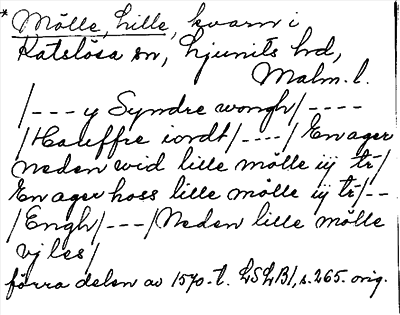 * Mölle, Lille, kvarn i
Katslösa sn, Ljunits hd,
Malm. l.
/--- y Syndre wongh/----
/Hauffre iordt/----/ En ager
neden wid lille mölle iij tr/
En ager hoss lille mölle iij tr/--
/Engh/---/Neden lille mölle
vj les/
förra delen av 1570-t. LSLB1, s. 265. orig.